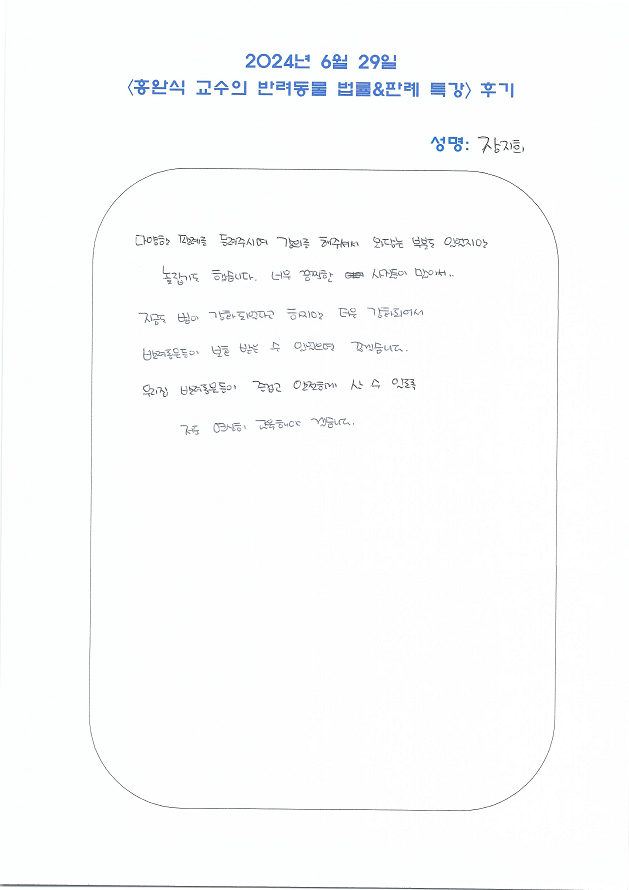 2024년 6월 29일
<홍완식 교수의 반려동물 법률&판례 특강> 후기
성명: 장지희
다양한 판례를 들려주시며 강의를 해주셔서 와닿는 부분도 있었지만
놀랍기도 했습니다. 너무 끔찍한 사람들이 많아서..
지금도 법이 강화되었다고 하지만 더욱 강화되어서
반려동물들이 보호 받는 수 있었으며 좋겠습니다.
우리집 반려동물들이 즐겁고 안전하게 살 수 있도록
저도 열심히 교육해야 겠습니다.